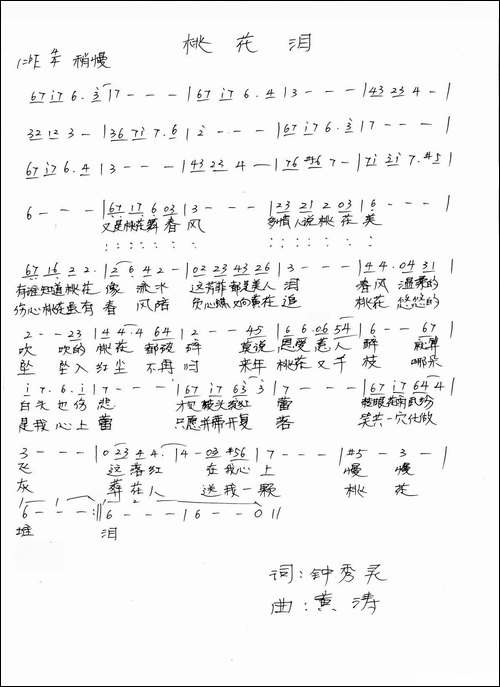 桃花泪
1=♭E 4/4 稍慢
67 i7 6. 3 | 7 - - - | 67 i7 6. 4 | 3 - - - | 43 23 4 - |
32 12 3 - | 36 7i 7. 6 | 2 - - - | 67 i7 6. 3 | 7 - - - |
67 i7 6. 4 | 3 - - - | 43 23 4 - | 76 #56 7 - | 7i 3i 7. #5 |
6 - - - | 67 17 6 03 | 3 - - - | 23 21 2 03 | 6 - - - |
又是桃花舞春风 多情人说桃花美
67 16 2 2. | 2 6 4 2 - | 02 23 43 26 | 3 - - - | 4 4. 04 31 |
有谁知道桃花像流水 这芳菲都是美人泪 春风温柔的
伤心桃花最有春风陪 负心蝶又向黄花追 桃花悠悠的
2 - - 23 | 4 4. 4 64 | 2 - - 45 | 6 6. 06 54 | 6 - - 67 |
吹 吹的桃花都破碎 莫说恩爱惹人醉 就算
坠 坠入红尘不再回 来年桃花又千枝 哪朵
i 7. 6. i | 7 - - - | 67 i7 63 3 | 7 - - - | 67 i7 64 4 |
白头也伤悲 蕾
是我心上蕾 只愿并蒂开复落 笑共一穴化做
3 - - - | 0 23 4 4. | 4 - 03 #56 | 7 - - - | #5 - 3 - |
飞 这落红在我心上 慢慢
灰 葬花人送我一颗 桃花
6 - - - :‖ 6 - - - | 6 - - 0 ‖
堆 泪
词:钟秀灵
曲:黄涛